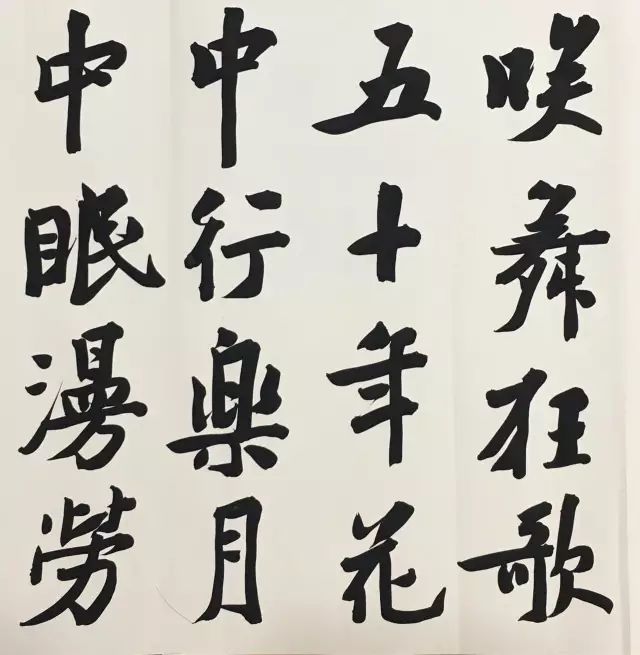 咲舞狂歌
五十年花
中行樂月
中眠漫勞